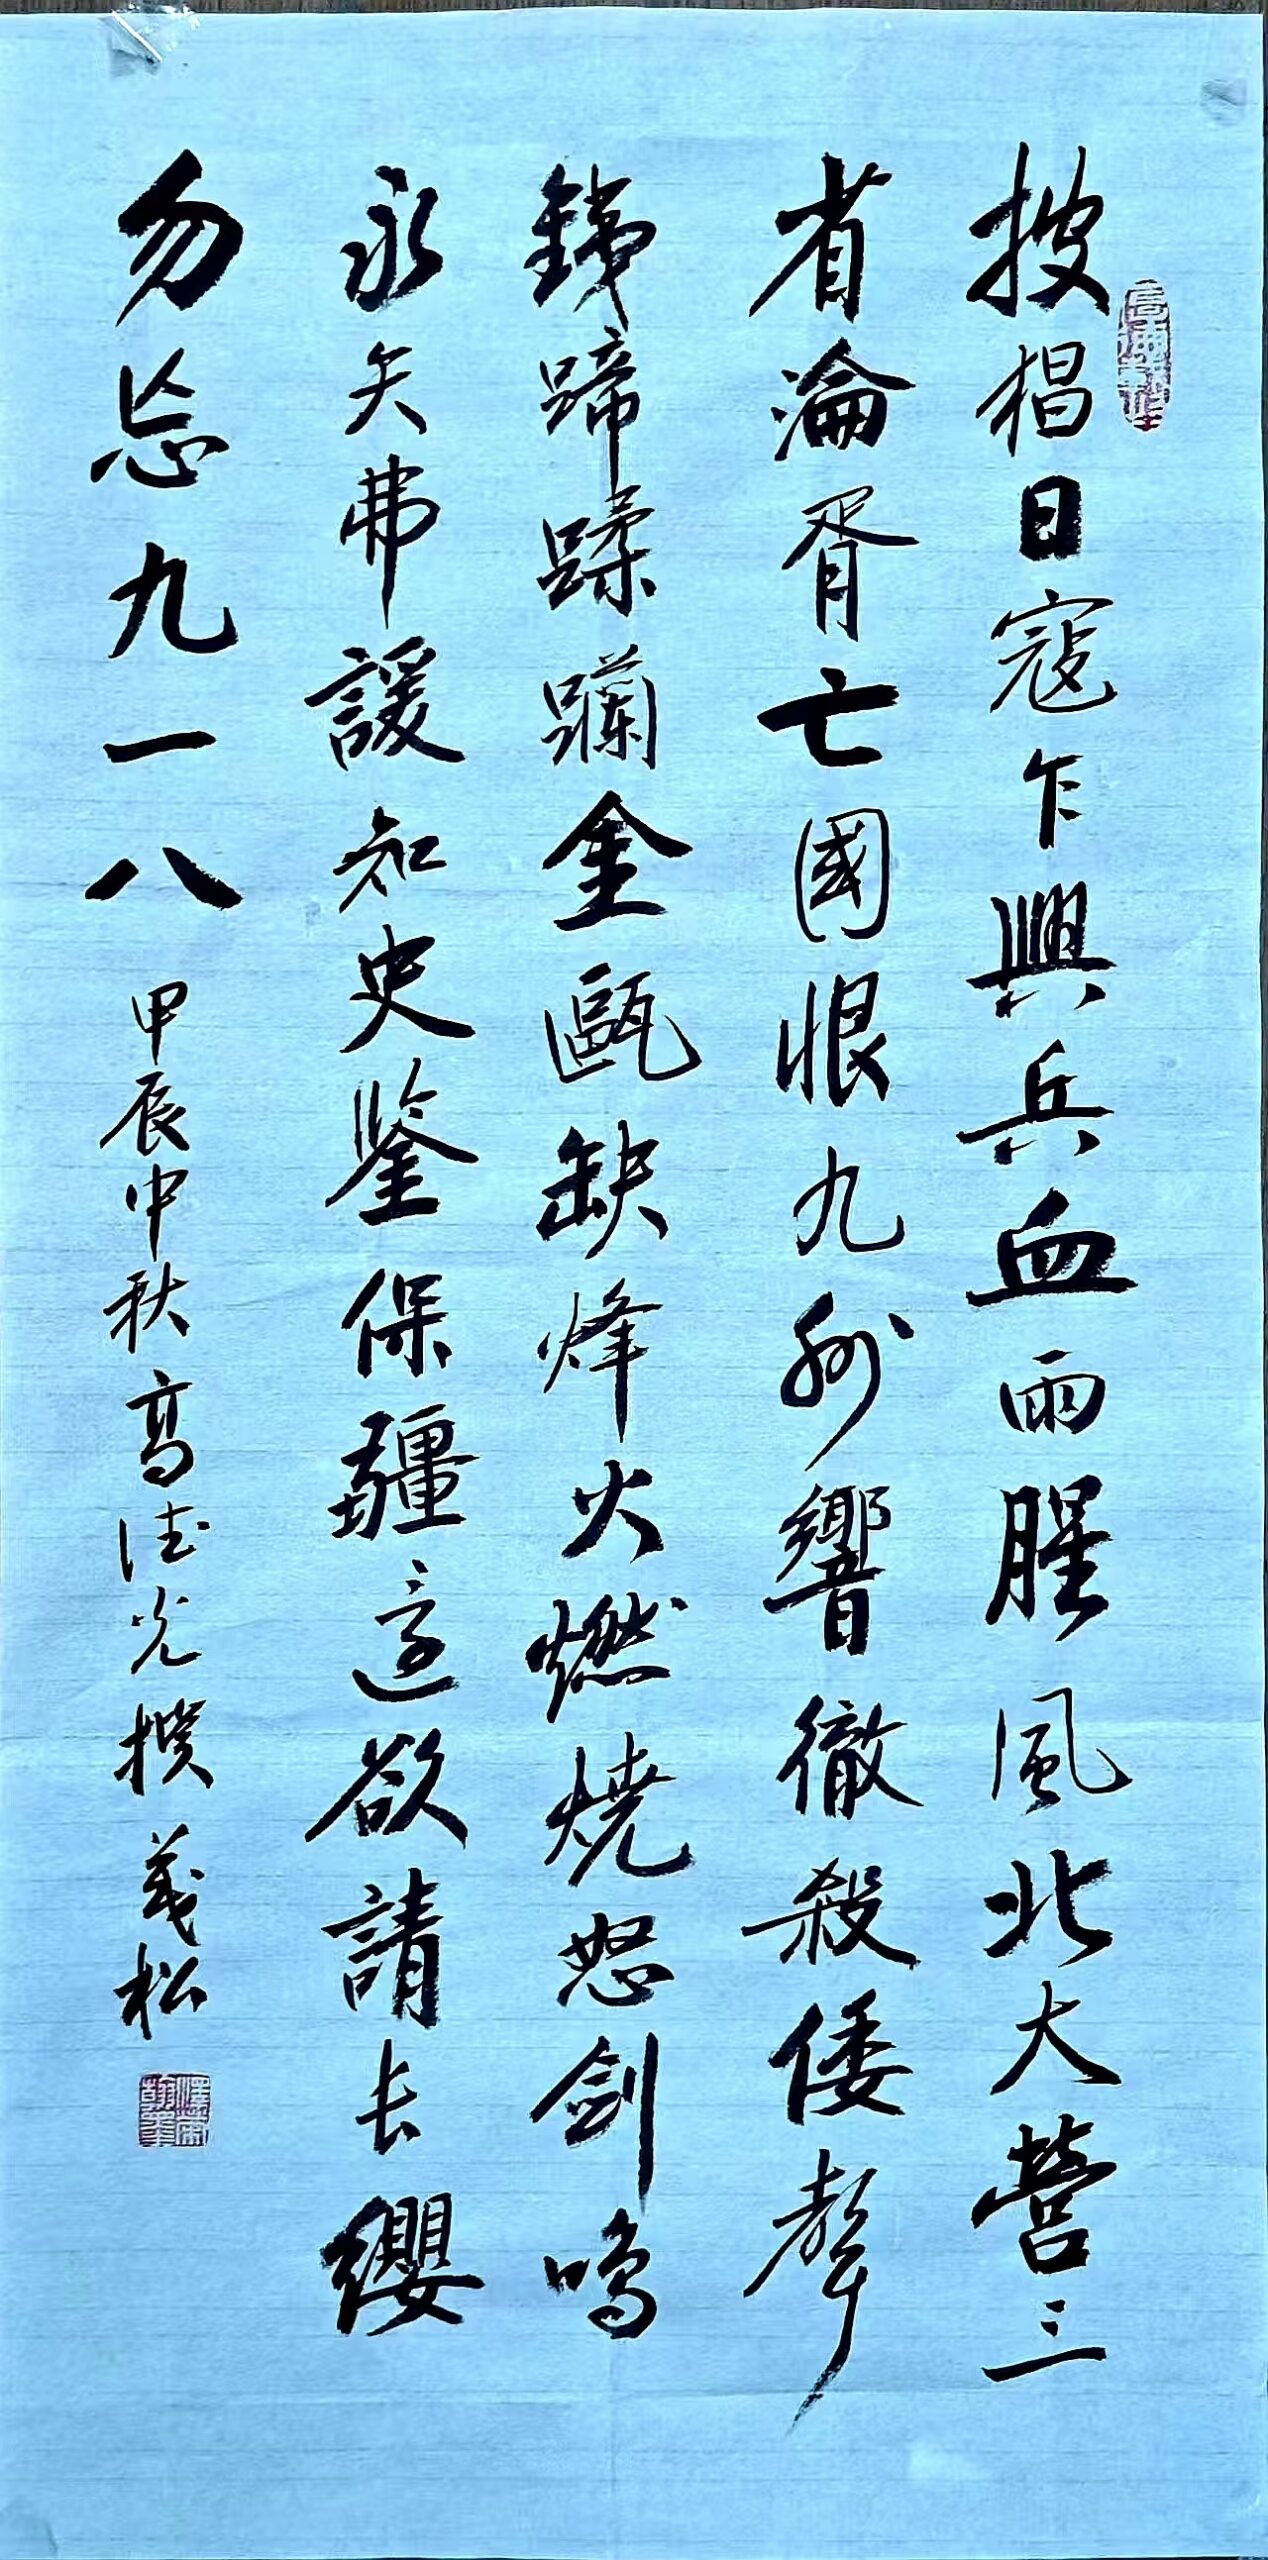 披猖日寇乍興兵血雨腥風北大營三
省淪胥亡國恨九州響徹殺倭聲
鐵蹄蹂躪金甌缺烽火燃燒怒劍鳴
永矢弗諼知史鑒保疆這欲請長纓
勿忘九一八
甲辰中秋高德光撰義松